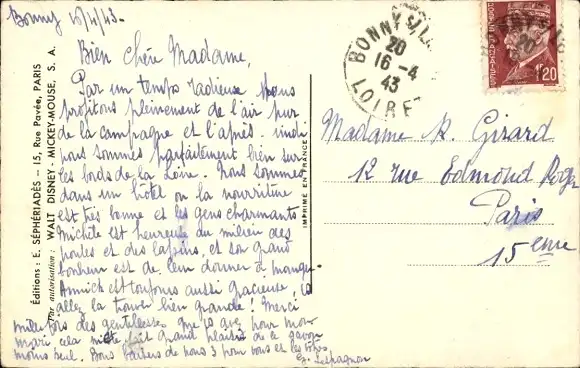 Bonny 15/4/43.
Bien chère Madame,
Par un temps radieux nous
profitons pleinement de l'air pur
de la campagne et l'après-midi
nous sommes parfaitement bien sur
les bords de la Loire. Nous sommes
dans un hôtel ou la nourriture
est très bonne et les gens charmants
Michèle est heureuse du milieu des
poules et des lapins, et son grand
bonheur est de leur donner à manger.
Annick est toujours aussi gracieuse,
allez la trouver bien grande! Merci
mille fois des gentillesses que vs avez pour mon
mari cela m'a fait grand plaisir de le savoir
moins seul. Bons baisers de nous 3 pour vous et les vôtres
Lespagnon
Éditions: E. SÉPHÉRIADÈS -- 15, Rue Pavée, PARIS
Par autorisation: WALT DISNEY - MICKEY-MOUSE, S. A.
IMPRIMÉ EN FRANCE
BONNY S/L
20
16-4
43
LOIRET
1F20
Madame R. Girard
12 rue Edmond Roger
Paris
15eme